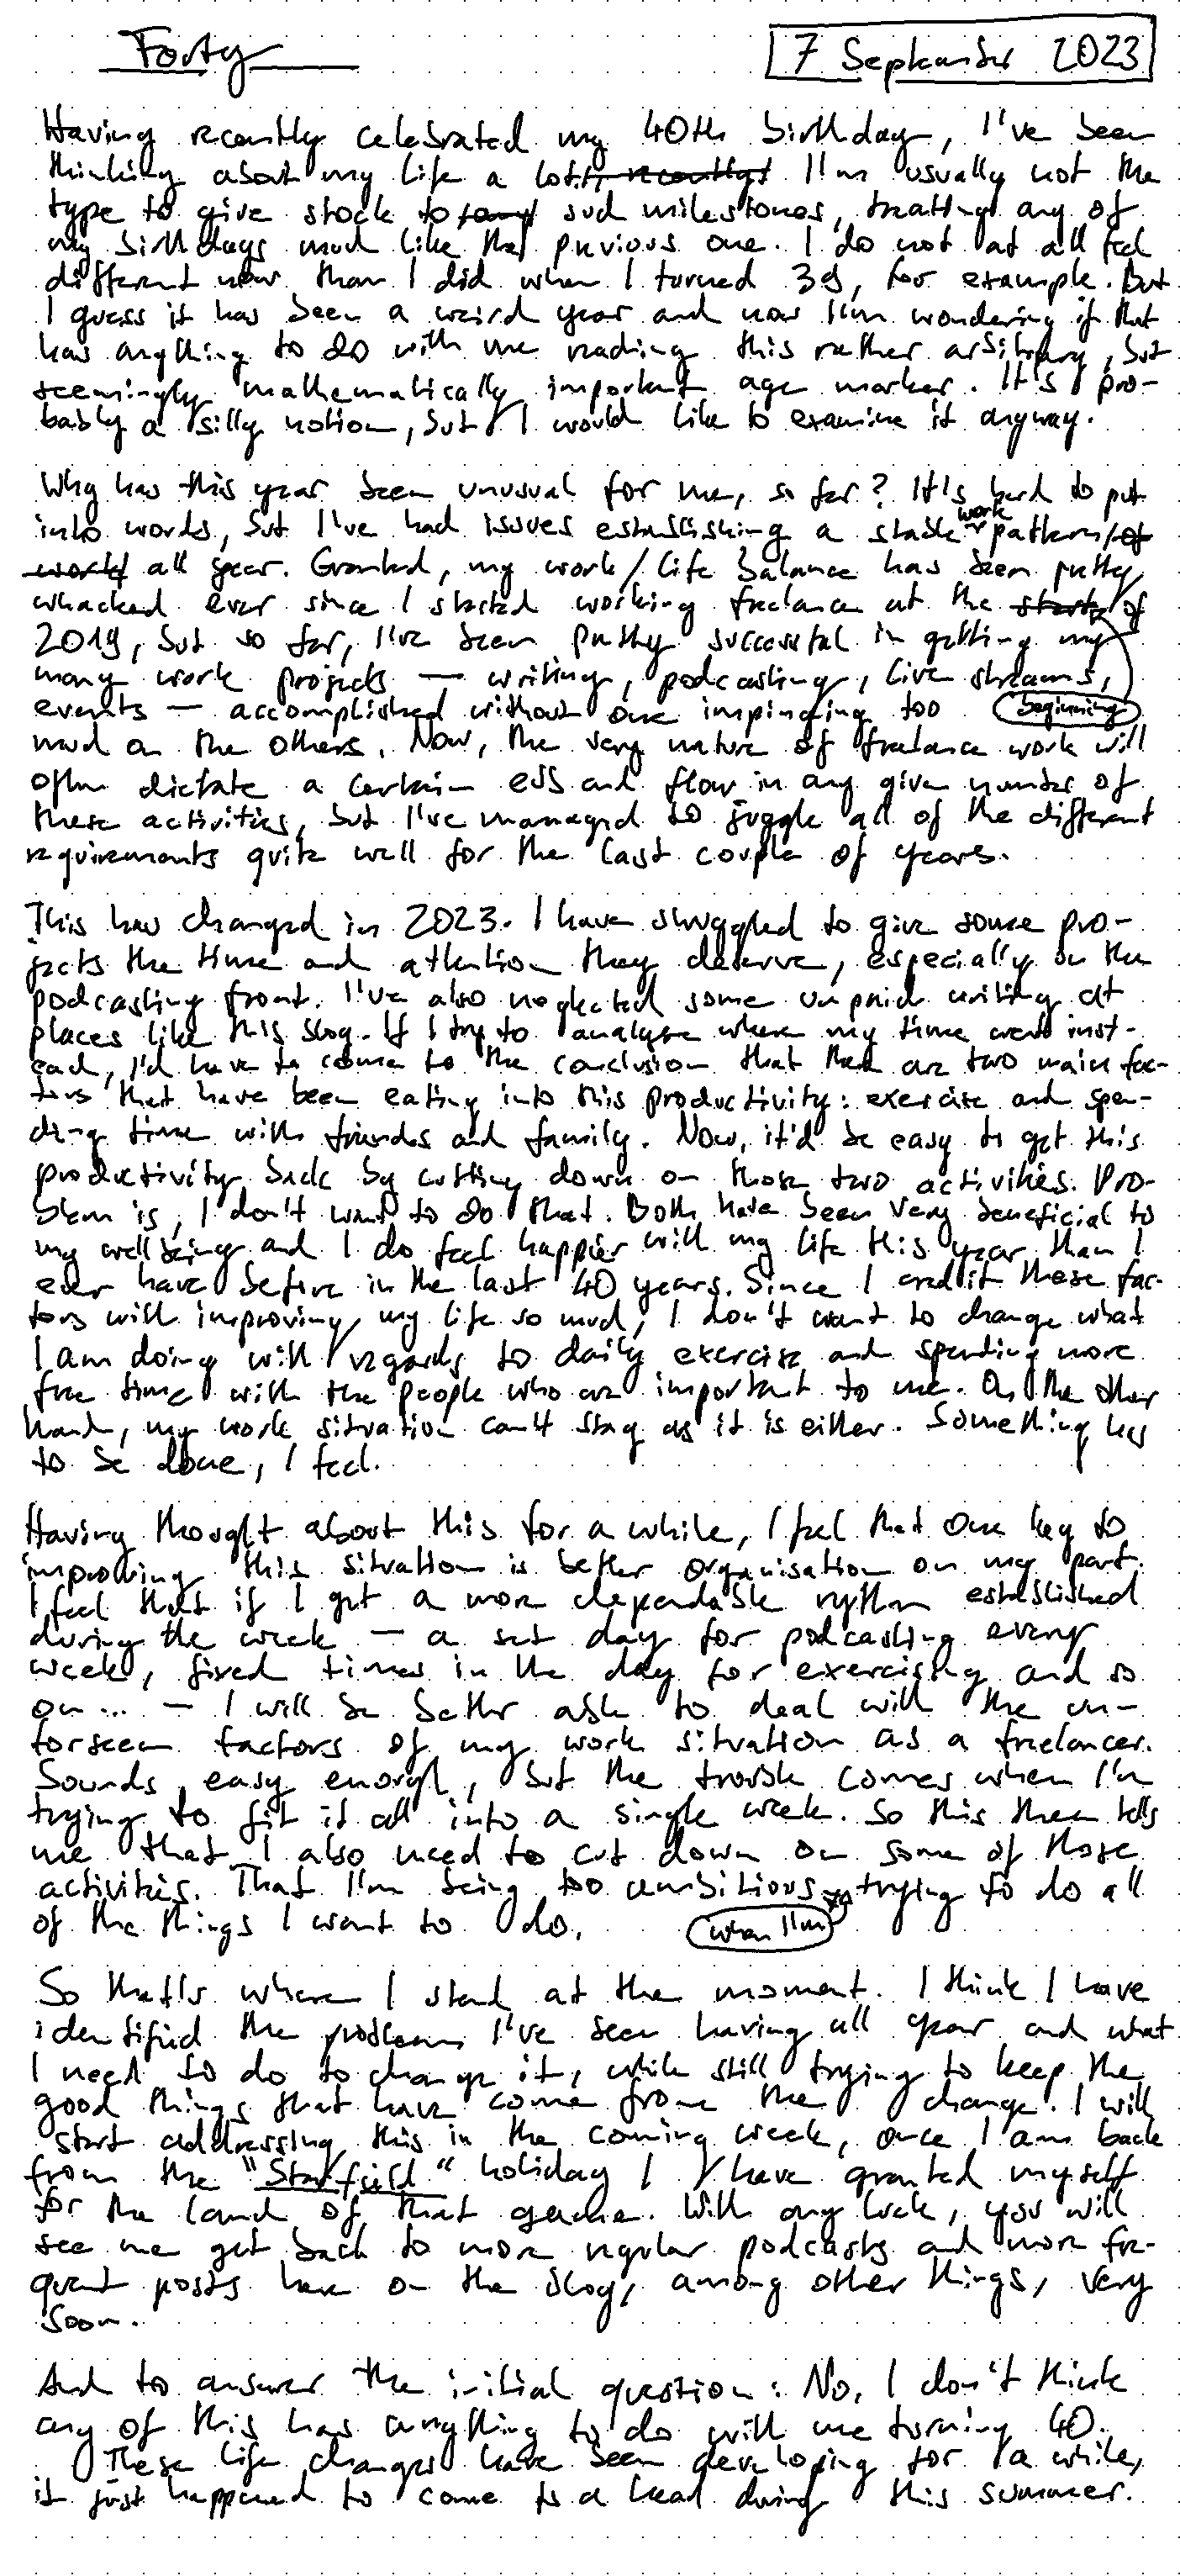 Forty
7 September 2023
Having recently celebrated my 40th birthday, I've been
thinking about my life a lot. recently. I'm usually not the
type to give stock to such milestones, treating any of
my birthdays much like the previous one. I do not at all feel
different now than I did when I turned 39, for example. But
I guess it has been a weird year and now I'm wondering if that
has anything to do with me reaching this rather arbitrary, but
seemingly mathematically important age marker. It's pro-
bably a silly notion, but I would like to examine it anyway.
Why has this year been unusual for me, so far? It's hard to put
into words, but I've had issues establishing a stable work pattern of
work all year. Granted, my work/life balance has been pretty
whacked ever since I started working freelance at the start of
2019, but so far, I've been pretty successful in getting my
many work projects — writing, podcasting, live streams,
events — accomplished without one impinging too beginning
much on the others. Now, the very nature of freelance work will
often dictate a certain ebb and flow in any given number of
these activities, but I've managed to juggle all of the different
requirements quite well for the last couple of years.
This has changed in 2023. I have struggled to give some pro-
jects the time and attention they deserve, especially on the
podcasting front. I've also neglected some unpaid writing at
places like this blog. If I try to analyse where my time went inst-
ead, I'd have to come to the conclusion that there are two main fac-
tors that have been eating into this productivity: exercise and spen-
ding time with friends and family. Now, it'd be easy to get this
productivity back by cutting down on those two activities. Pro-
blem is, I don't want to do that. Both have been very beneficial to
my wellbeing and I do feel happier with my life this year than I
ever have before in the last 40 years. Since I credit these fac-
tors with improving my life so much, I don't want to change what
I am doing with regards to daily exercise and spending more
free time with the people who are important to me. On the other
hand, my work situation can't stay as it is either. Something has
to be done, I feel.
Having thought about this for a while, I feel that one key to
improving this situation is better organisation on my part.
I feel that if I get a more dependable rythm established
during the week — a set day for podcasting every
week, fixed times in the day for exercising and so
on... — I will be better able to deal with the un-
forseen factors of my work situation as a freelancer.
Sounds easy enough, but the trouble comes when I'm
trying to fit it all into a single week. So this then tells
me that I also need to cut down on some of those
activities. That I'm being too ambitious trying to do all
of the things I want to do. when I'm
So that's where I stand at the moment. I think I have
identified the problem I've been having all year and what
I need to do to change it, while still trying to keep the
good things that have come from the change. I will
start addressing this in the coming week, once I am back
from the "Starfield" holiday I have granted myself
for the launch of that game. With any luck, you will
see me get back to more regular podcasts and more fre-
quent posts here on the blog, among other things, very
soon.
And to answer the initial question: No, I don't think
any of this has anything to do with me turning 40.
These life changes have been developing for a while,
it just happened to come to a head during this summer.